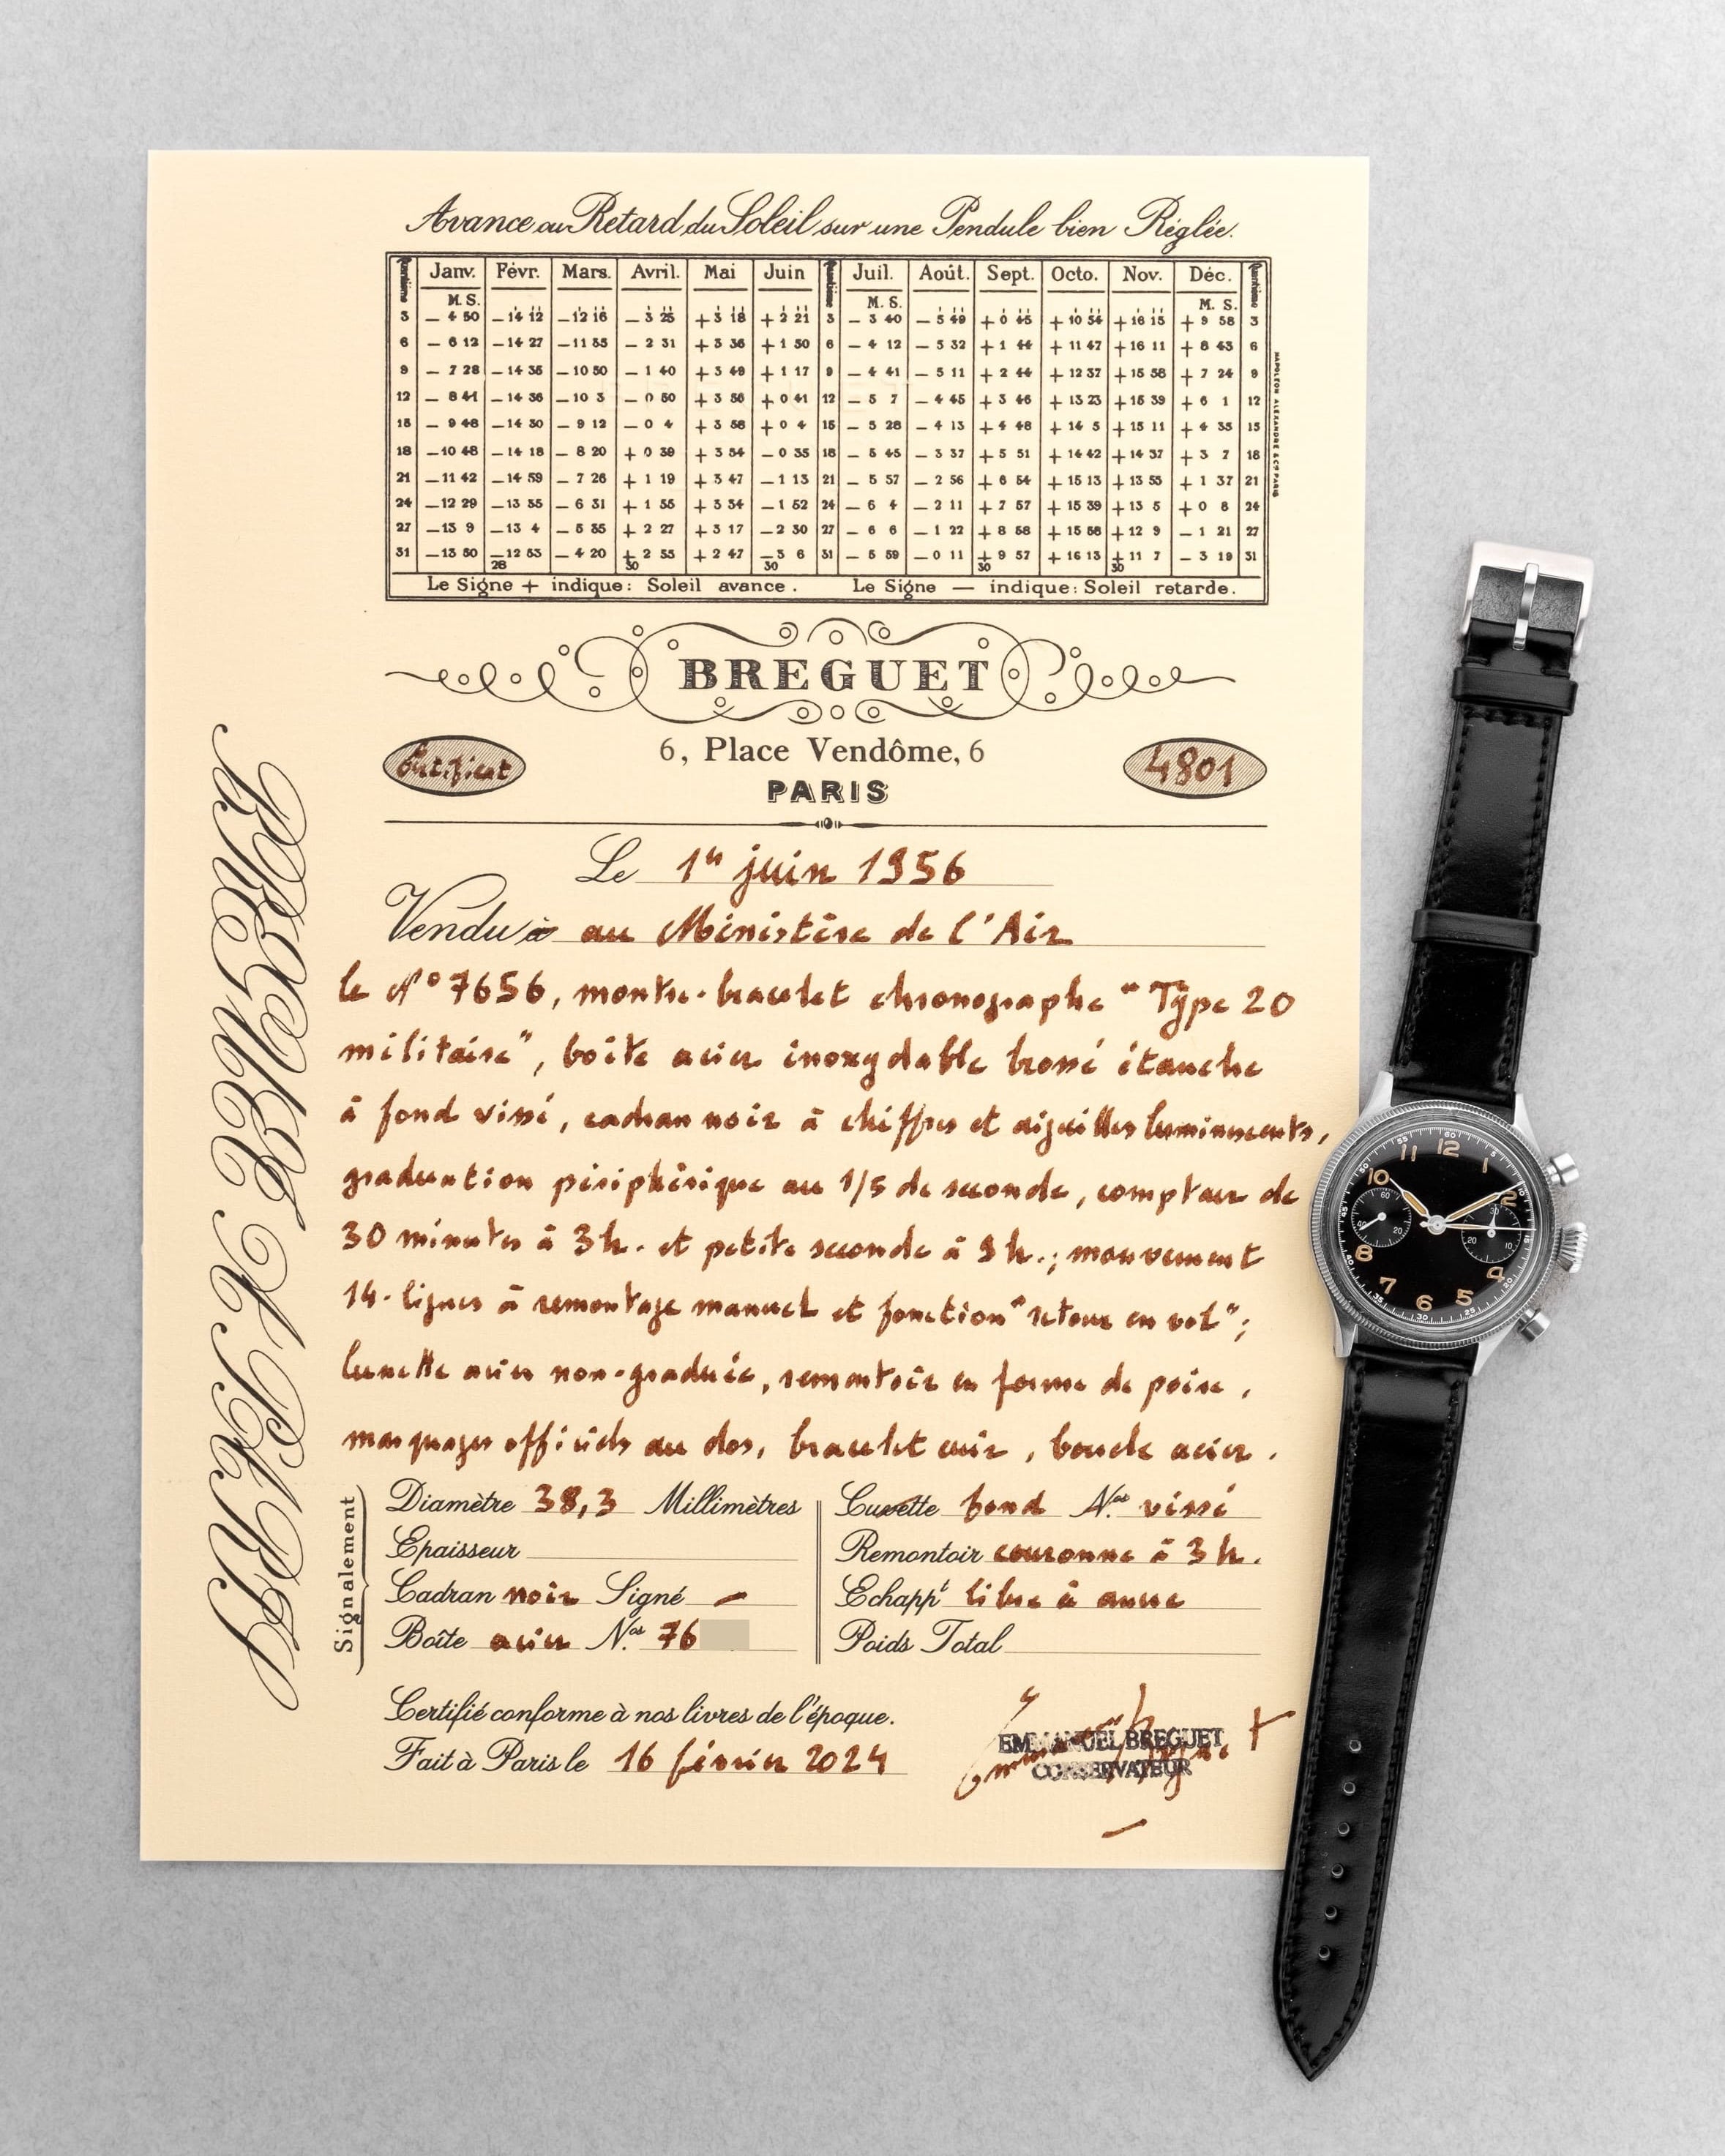 Avance ou Retard du Soleil sur une Pendule bien Réglée.
Quantième Janv. Févr. Mars. Avril. Mai Juin Quantième Juil. Août. Sept. Octo. Nov. Déc. Quantième
M. S. M. S. M. S.
3 — 4 50 — 14 12 — 12 16 — 3 25 + 3 18 + 2 21 3 — 3 40 — 5 49 + 0 45 + 10 54 + 16 15 + 9 58 3
6 — 6 12 — 14 27 — 11 35 — 2 31 + 3 36 + 1 50 6 — 4 12 — 5 32 + 1 44 + 11 47 + 16 11 + 8 43 6
9 — 7 28 — 14 35 — 10 50 — 1 40 + 3 49 + 1 17 9 — 4 41 — 5 11 + 2 44 + 12 37 + 15 58 + 7 24 9
12 — 8 41 — 14 36 — 10 3 — 0 50 + 3 56 + 0 41 12 — 5 7 — 4 45 + 3 46 + 13 23 + 15 39 + 6 1 12
15 — 9 48 — 14 30 — 9 12 — 0 4 + 3 58 + 0 4 15 — 5 28 — 4 13 + 4 48 + 14 5 + 15 11 + 4 35 15
18 — 10 48 — 14 18 — 8 20 + 0 39 + 3 54 — 0 35 18 — 5 45 — 3 37 + 5 51 + 14 42 + 14 37 + 3 7 18
21 — 11 42 — 14 59 — 7 26 + 1 19 + 3 47 — 1 13 21 — 5 57 — 2 56 + 6 54 + 15 13 + 13 55 + 1 37 21
24 — 12 29 — 13 35 — 6 31 + 1 55 + 3 34 — 1 52 24 — 6 4 — 2 11 + 7 57 + 15 39 + 13 5 + 0 8 24
27 — 13 9 — 13 4 — 5 35 + 2 27 + 3 17 — 2 30 27 — 6 6 — 1 22 + 8 58 + 15 58 + 12 9 — 1 21 27
31 — 13 50 — 12 53 — 4 20 + 2 55 + 2 47 — 3 6 31 — 5 59 — 0 11 + 9 57 + 16 13 + 11 7 — 3 19 31
28 30 30 30 30
Le Signe + indique: Soleil avance. Le Signe — indique: Soleil retarde.
NAPOLÉON ALEXANDRE & Cº PARIS
BREGUET
Certificat 6, Place Vendôme, 6 4801
PARIS
Le 1er juin 1956
Vendu à au Ministère de l'Air
le Nº 7656, montre-bracelet chronographe "Type 20
militaire", boîte acier inoxydable brossé étanche
à fond vissé, cadran noir à chiffres et aiguilles luminescents,
graduation périphérique au 1/5 de seconde, compteur de
30 minutes à 3h. et petite seconde à 9h.; mouvement
14-lignes à remontage manuel et fonction "retour en vol";
lunette acier non-graduée, remontoir en forme de poire,
marquages officiels au dos, bracelet cuir, boucle acier.
Signalement
Diamètre 38,3 Millimètres
Epaisseur
Cadran noir Signé —
Boîte acier Nos 76
Cuvette fond Nos vissé
Remontoir couronne à 3h.
Echappt libre à ancre
Poids Total
Certifié conforme à nos livres de l'époque.
Fait à Paris le 16 février 2024
EMMANUEL BREGUET
CONSERVATEUR
60 5 10 15 20 25 30 35 45 50 55
12 1 2 4 5 6 7 8 10 11
60 20 40
30 10 20